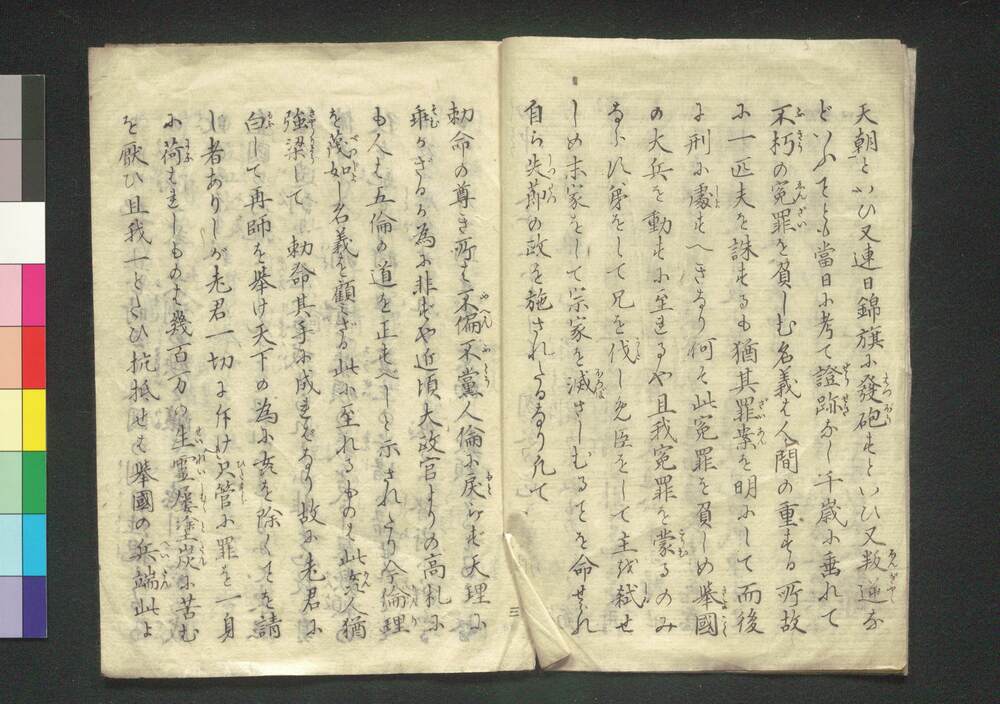 天朝といひ又連日錦旗に發砲すといひ又叛逆な
どいふてとも當日に考て證跡なし千歳に垂れて
不朽の冤罪を負しむ名義は人間の重する所故
に一匹夫を誅するも猶其罪案を明にして而後
に刑に處すへきなり何そ此冤罪を負しめ舉國
の大兵を動すに至るや且我冤罪を蒙るのみ
ならす弟をして兄を伐し免臣をして主を弑せ
しめ末家をして宗家を滅さしむることを命せられ
自ら失節の政を施されたるなり凡て
勅命の尊き所は不偏不黨人倫に戻らす天理に
乖かさるか為に非すや近頃大政官よりの高札に
も人は五倫の道を正すへしと示されたり今倫理
を蔑如し名義を顧さる此に至れるものは此姦人猶
強梁して 勅命其手に成れはなり故に老君に
白して再師を舉け天下の為に姦を除くことを請
し者ありしが老君一切に斥け只管に罪を一身
に荷はれしものは幾百万の生靈屡塗炭に苦む
を厭ひ且我一とたひ抗抵せは舉國の兵端此よ
三